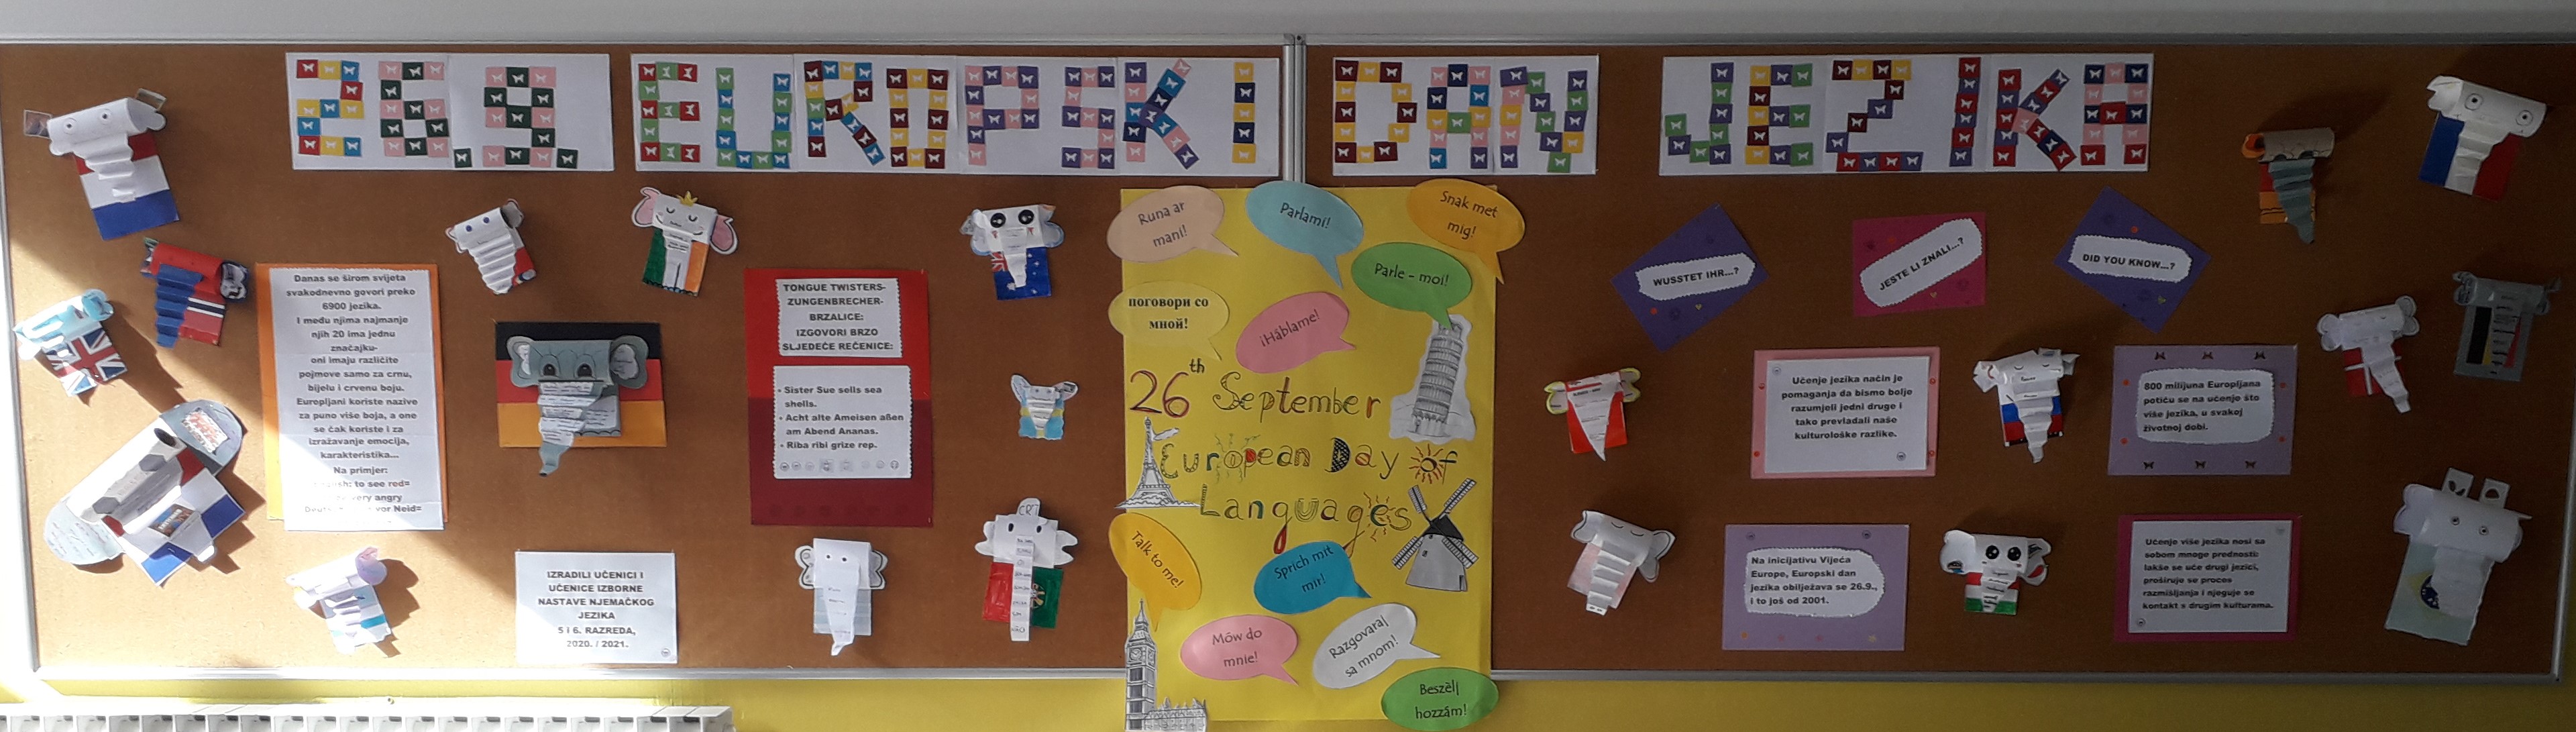 26.9. EUROPSKI DAN JEZIKA
Danas se širom svijeta
svakodnevno govori preko
6900 jezika.
I među njima najmanje
njih 20 ima jednu
značajku-
oni imaju različite
pojmove samo za crnu,
bijelu i crvenu boju.
Europljani koriste nazive
za puno više boja, a one
se čak koriste i za
izražavanje emocija,
karakteristika...
Na primjer:
to see red=
very angry
vor Neid=
IZRADILI UČENICI I
UČENICE IZBORNE
NASTAVE NJEMAČKOG
JEZIKA
5 i 6. RAZREDA,
2020. / 2021.
TONGUE TWISTERS-
ZUNGENBRECHER-
BRZALICE:
IZGOVORI BRZO
SLJEDEĆE REČENICE:
• Sister Sue sells sea
shells.
• Acht alte Ameisen aßen
am Abend Ananas.
• Riba ribi grize rep.
Runa ar
mani!
Parlami!
Snak met
mig!
Parle - moi!
поговори со
мной!
¡Háblame!
26th September
European Day of
Languages
Talk to me!
Sprich mit
mir!
Mów do
mnie!
Razgovaraj
sa mnom!
Beszèlj
hozzám!
WUSSTET IHR...?
JESTE LI ZNALI...?
DID YOU KNOW...?
Učenje jezika način je
pomaganja da bismo bolje
razumjeli jedni druge i
tako prevladali naše
kulturološke razlike.
800 milijuna Europljana
potiču se na učenje što
više jezika, u svakoj
životnoj dobi.
Na inicijativu Vijeća
Europe, Europski dan
jezika obilježava se 26.9.,
i to još od 2001.
Učenje više jezika nosi sa
sobom mnoge prednosti:
lakše se uče drugi jezici,
proširuje se proces
razmišljanja i njeguje se
kontakt s drugim kulturama.